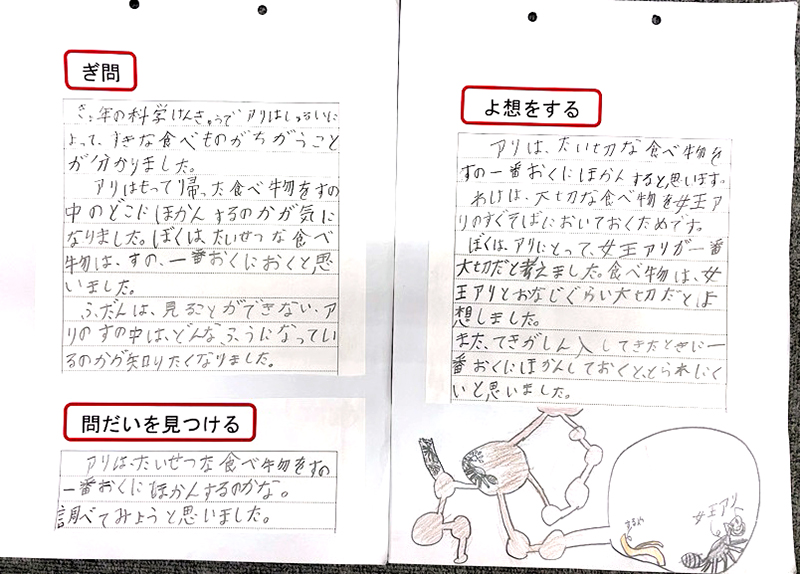 ぎ問
きょ年の科学けんきゅうで、アリはしゅるいに
よって、すきな食べものがちがうこと
が分かりました。
アリはもって帰った食べ物をすの
中のどこにほかんするのかが気に
なりました。ぼくは、たいせつな食べ
物は、すの、一番おくにおくと思
いました。
ふだんは、見ることができない、ア
リのすの中は、どんなふうになってい
るのかが知りたくなりました。
問だいを見つける
アリは、たいせつな食べ物をすの
一番おくにほかんするのかな。
調べてみようと思いました。
よ想をする
アリは、たい切な食べ物を
すの一番おくにほかんすると、思います。
わけは、大切な食べ物を女王ア
リのすぐそばにおいておくためです。
ぼくは、アリにとって、女王アリが一番
大切だと考えました。食べ物は、女
王アリとおなじぐらい大切だとよ
想しました。
また、てきがしん入してきたときに一
番おくにほかんしておくと、とられにく
いと思いました。
女王アリ